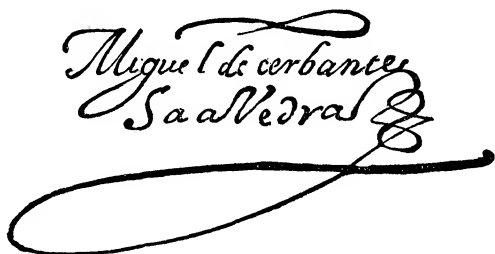 Miguel de cerbantes
SaaVedra